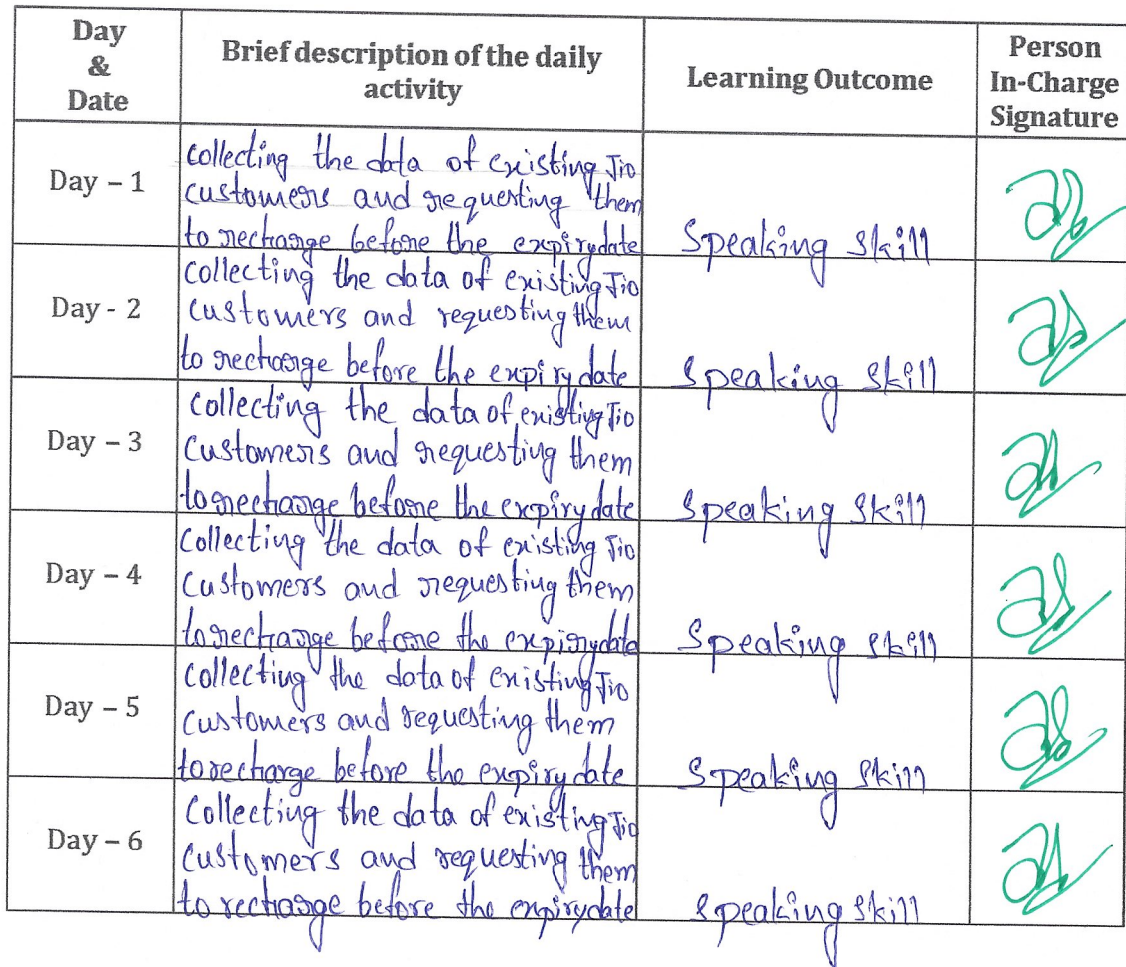 Day & Date
Brief description of the daily activity
Learning Outcome
Person In-Charge Signature
Day – 1
collecting the data of existing Jio
customers and requesting them
to recharge before the expirydate
Speaking skill
Day - 2
collecting the data of existing Jio
customers and requesting them
to recharge before the expirydate
Speaking skill
Day – 3
collecting the data of existing Jio
customers and requesting them
to recharge before the expirydate
Speaking skill
Day – 4
collecting the data of existing Jio
customers and requesting them
to recharge before the expirydate
Speaking skill
Day – 5
collecting the data of existing Jio
customers and requesting them
to recharge before the expirydate
Speaking skill
Day – 6
collecting the data of existing Jio
customers and requesting them
to recharge before the expirydate
speaking skill